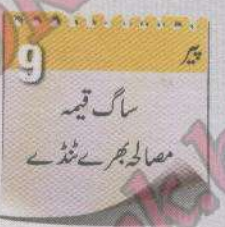 پیر
9
ساگ قیمہ
مصالحہ بھرے ٹنڈے